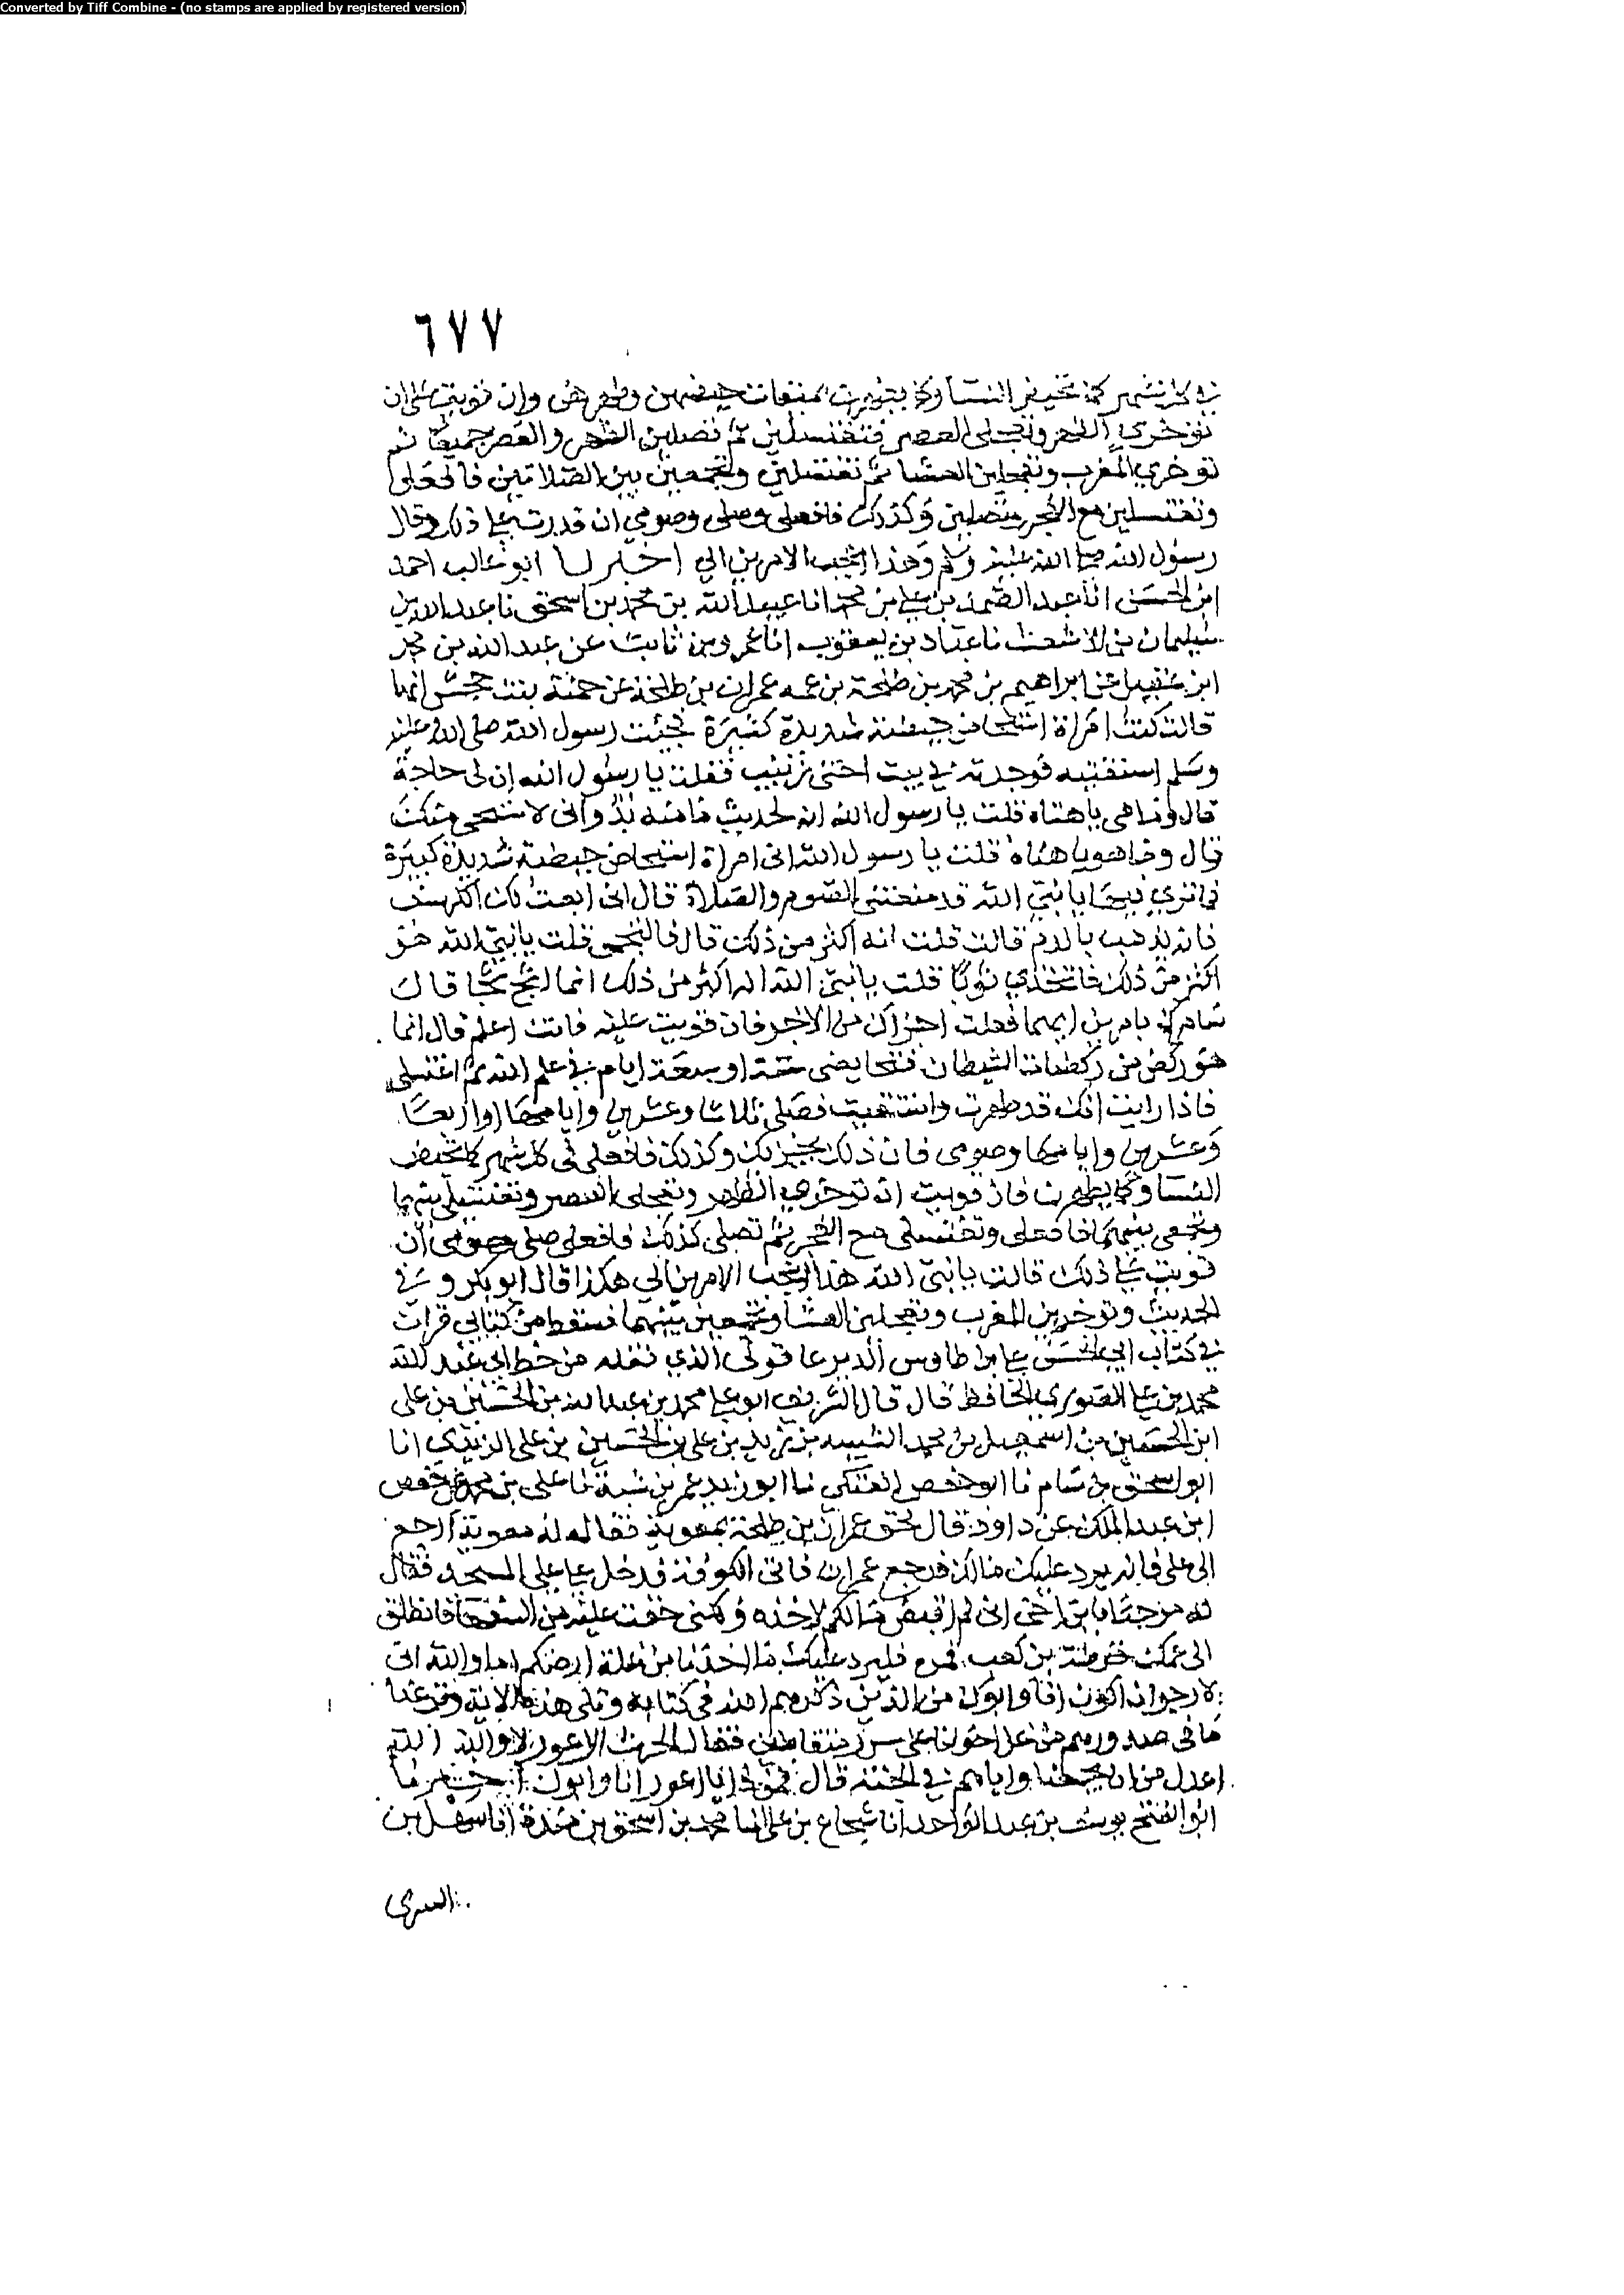 Converted by Tiff Combine - (no stamps are applied by registered version)
٦٧٧
في كل شهر كما تحيض النسا وكما يطهرن لميقات حيضهن وطهرهن وان قويت على ان
توخري الظهر وتعجلي العصر فتغتسلين ثم تصلين الظهر والعصر جميعا ثم
توخري المغرب وتعجلين العشا ثم تغتسلين وتجمعين بين الصلاتين فافعلي
وتغتسلين مع الفجر وتصلين وكذلك فافعلي وصلي وصومي ان قدرت على ذلك وقال
رسول الله صلى الله عليه وسلم وهذا اعجب الامرين الي اخبرنا ابو غالب احمد
ابن الحسن انا عبد الصمد بن علي بن محمد انا عبيد الله بن محمد بن اسحق نا عبد الله بن
سليمان بن الاشعث نا عباد بن يعقوب انا عمرو بن ثابت عن عبد الله بن محمد
ابن عقيل عن ابراهيم بن محمد بن طلحة بن عمه عمران بن طلحة عن حمنة بنت جحش انها
قالت كنت امراة استحاض حيضة شديدة كثيرة فجئت رسول الله صلى الله عليه
وسلم استفتيه فوجدته في بيت اختي زينب فقلت يا رسول الله ان لي حاجة
قال وما هي يا هنتاه قلت يا رسول الله انه لحديث ما منه بد واني لاستحي منك
قال وما هو يا هنتاه قلت يا رسول الله اني امراة استحاض حيضة شديدة كبيرة
فما تري فيها يا نبي الله قد منعتني الصوم والصلاة قال اني ابعث لك الكرسف
فانه يذهب بالدم قالت قلت انه اكثر من ذلك قال فالتجمي قلت يا نبي الله هو
اكثر من ذلك فاتخذي ثوبا قلت يا نبي الله انه اكثر من ذلك انما اثج ثجا قال
سامرك بامرين ايهما فعلت اجزاك من الاخر فان قويت عليه فانت اعلم قال انما
هو ركض من ركضات الشيطان فتحايضي ستة او سبعة ايام في علم الله ثم اغتسلي
فاذا رايت انك قد طهرت واستنقيت فصلي ثلاثا وعشرين وايامها او اربعا
وعشرين وايامها وصومي فان ذلك يجزيك وكذلك فافعلي في كل شهر كما تحيض
النسا وكما يطهرن فان قويت ان توخري الظهر وتعجلي العصر وتغتسلي بينهما
وتجمعي بينهما فافعلي وتغتسلي مع الفجر ثم تصلي كذلك فافعلي صلي وصومي ان
قويت على ذلك قالت يا نبي الله هذا اعجب الامرين الي هكذا قال ابو بكر وفي
الحديث وتوخرين المغرب وتعجلين العشا وتجمعين بينهما فسقط من كتابي قرات
في كتاب ابي الحسن علي بن طاوس الدير عاقولي الذي نقله من خط ابي عبد الله
محمد بن علي الصوري الحافظ قال قال الشريف ابو علي محمد بن عبد الله بن الحسين بن علي
ابن الحسين بن اسمعيل بن محمد الشبيه بن زيد بن علي بن الحسين بن علي الزيدي انا
ابو اسحق بن سام نا ابو حفص العتكي نا ابو زيد عمر بن شبة نا علي بن محمد عن حفص
ابن عبد الملك عن داود قال لحق عمران بن طلحة بمعوية فقال له معوية ارجع
الى علي فانه يرد عليك مالك فرجع عمران فاتى الكوفة فدخل على علي المسجد فقال
له مرحبا يا بن اخي اني لم اقبض مالكم لاخذه ولكني خفت عليه من السفها فانطلق
الى عمك قرظة بن كعب فمره فليرد عليك ما اخذنا من غلة ارضكم اما والله اني
لارجو ان اكون انا وابوك من الذين ذكرهم الله في كتابه وتلى هذه الاية ونزعنا
ما في صدورهم من غل اخوانا على سرر متقابلين فقال الحرث الاعور لا والله الله
اعدل من ان يجمعنا واياهم في الجنة قال فمن ذا يا اعور انا وابوك اخبرنا
ابو الفتح يوسف بن عبد الواحد انا شجاع بن علي انا محمد بن اسحق بن مندة انا سهل بن
السري